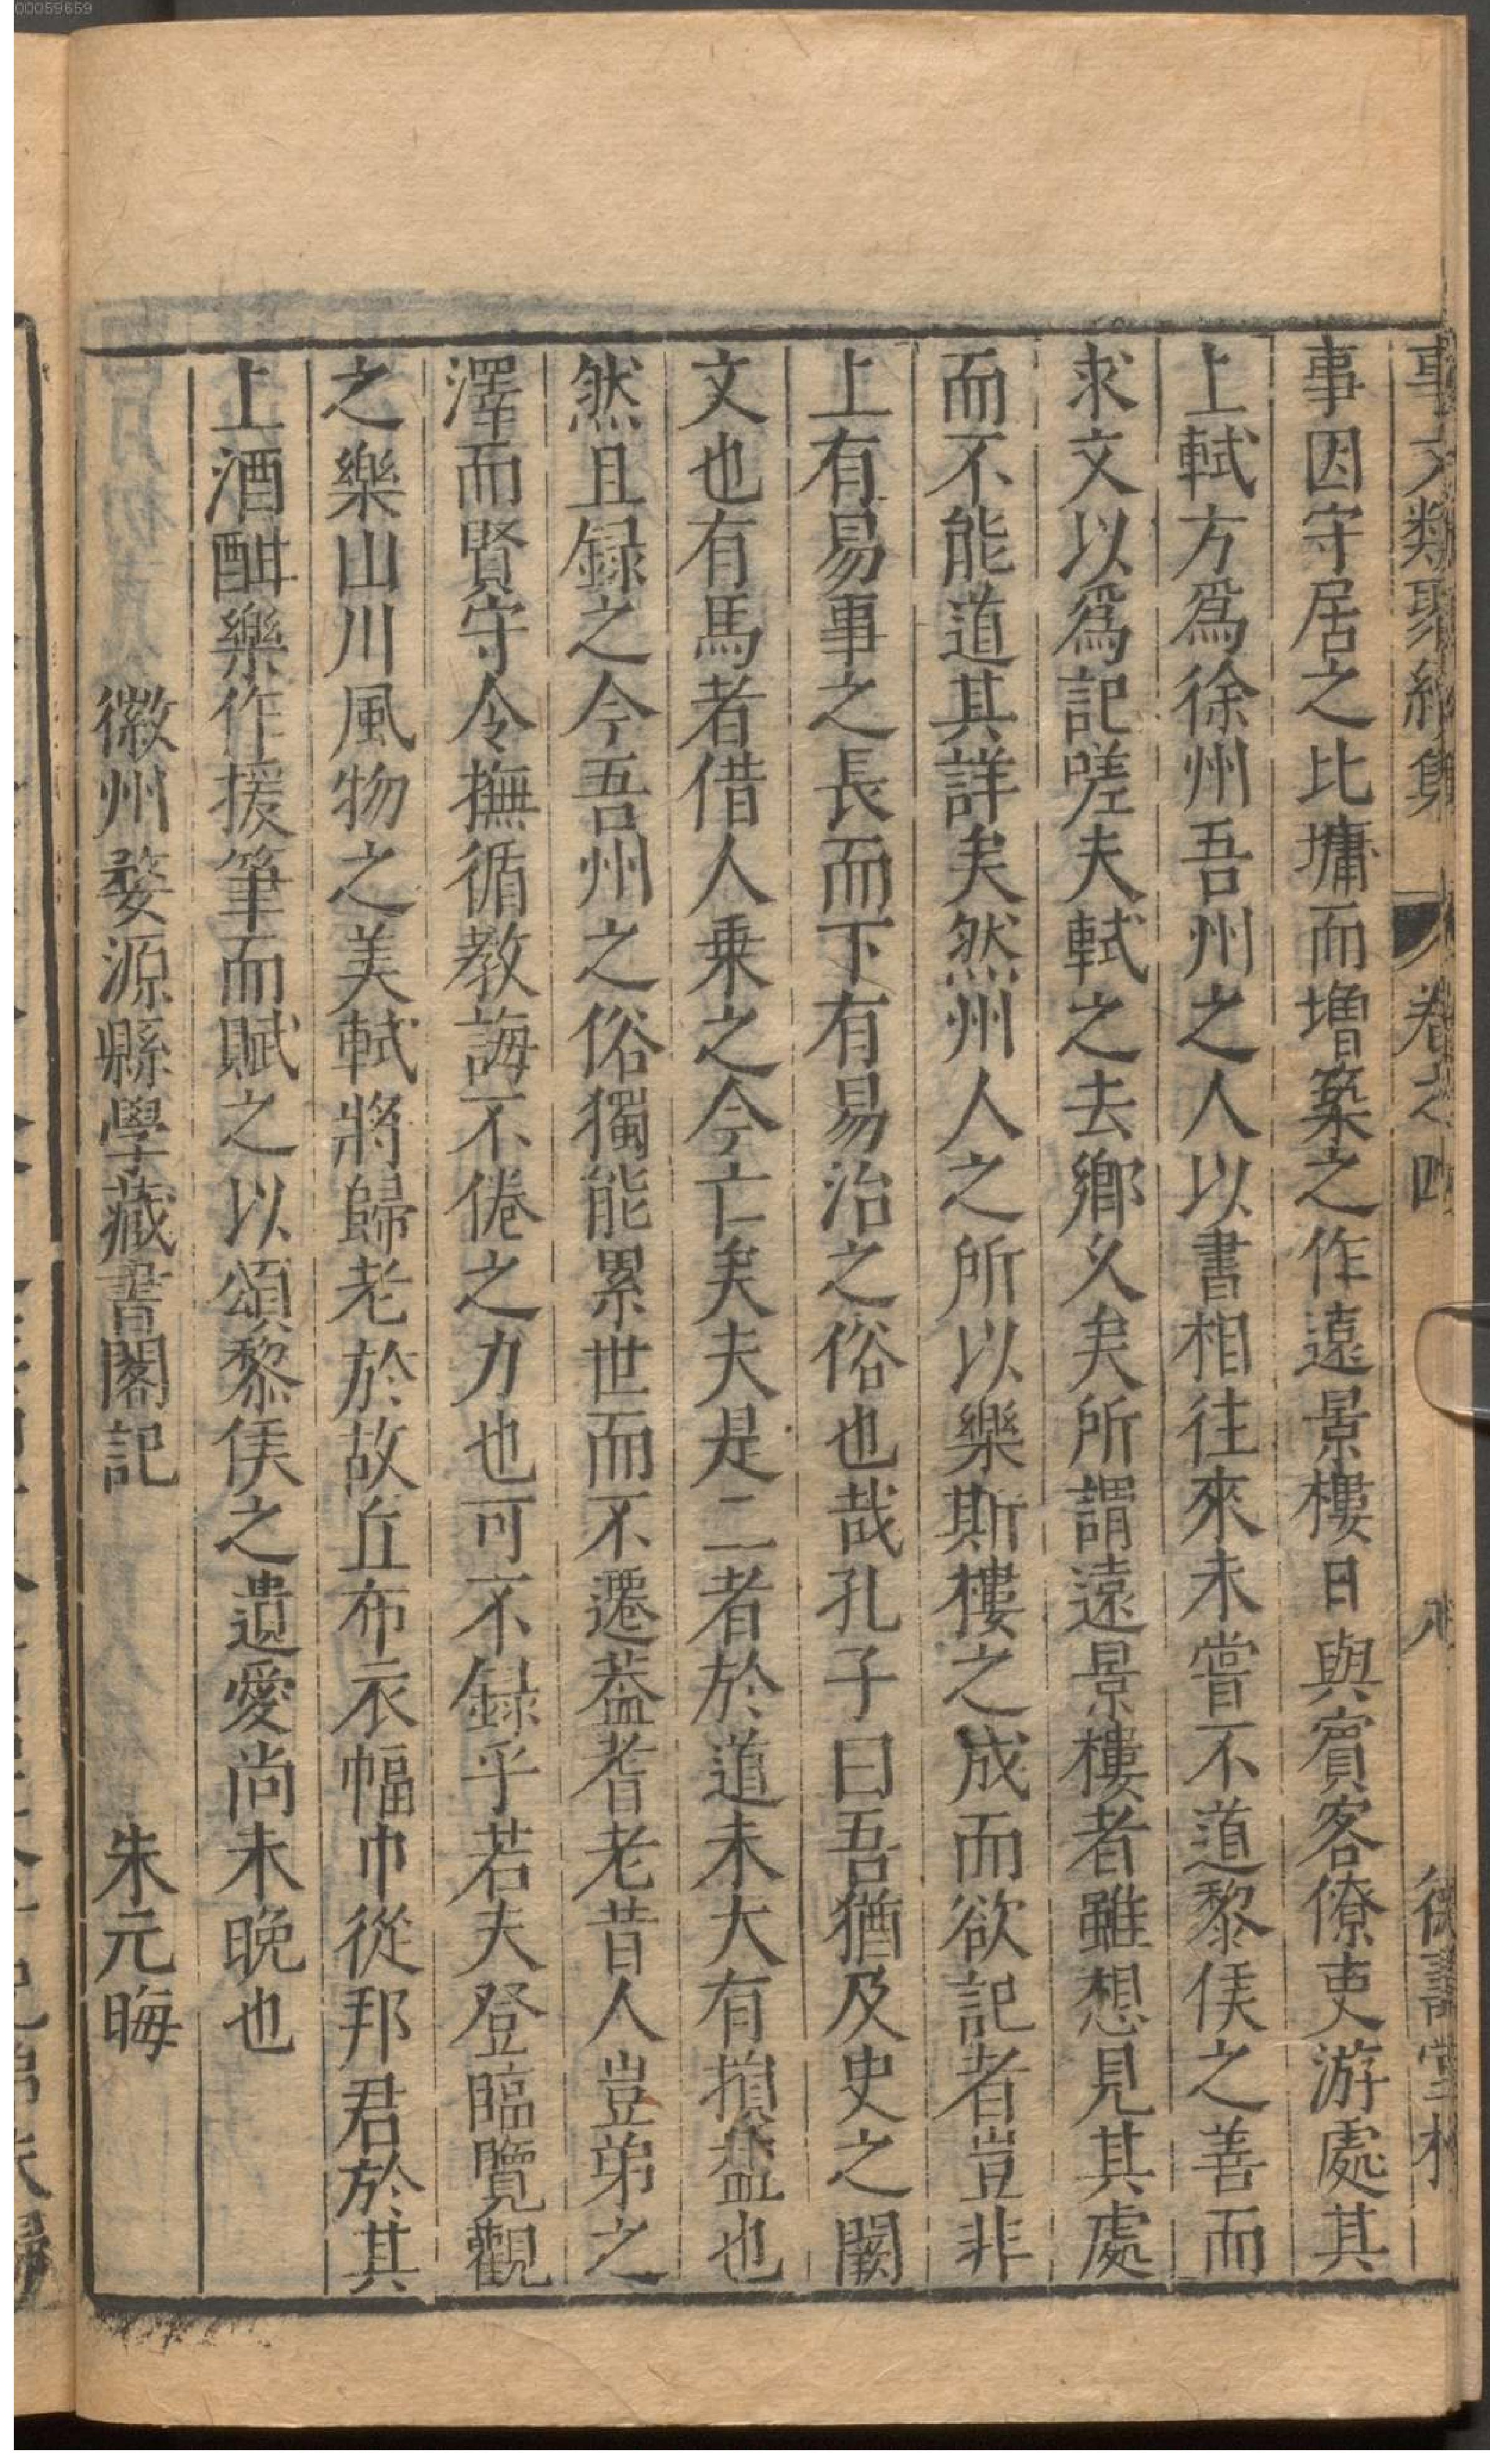 00059659
事文類聚續集 卷之四 八 德壽堂梓
事因守居之比墉而增築之作遠景樓日與賓客僚吏游處其
上軾方爲徐州吾州之人以書相往來未嘗不道黎侯之善而
求文以爲記嗟夫軾之去鄉久矣所謂遠景樓者雖想見其處
而不能道其詳矣然州人之所以樂斯樓之成而欲記者豈非
上有易事之長而下有易治之俗也哉孔子曰吾猶及史之闕
文也有馬者借人乗之今亡矣夫是二者於道未大有損益也
然且録之今吾州之俗獨能累世而不遷葢耆老昔人豈弟之
澤而賢守令撫循教誨不倦之力也可不録乎若夫登臨覽觀
之樂山川風物之美軾將歸老於故丘布衣幅巾從邦君於其
上酒酣樂作援筆而賦之以頌黎侯之遺愛尚未晚也
徽州婺源縣學藏書閣記 朱元晦